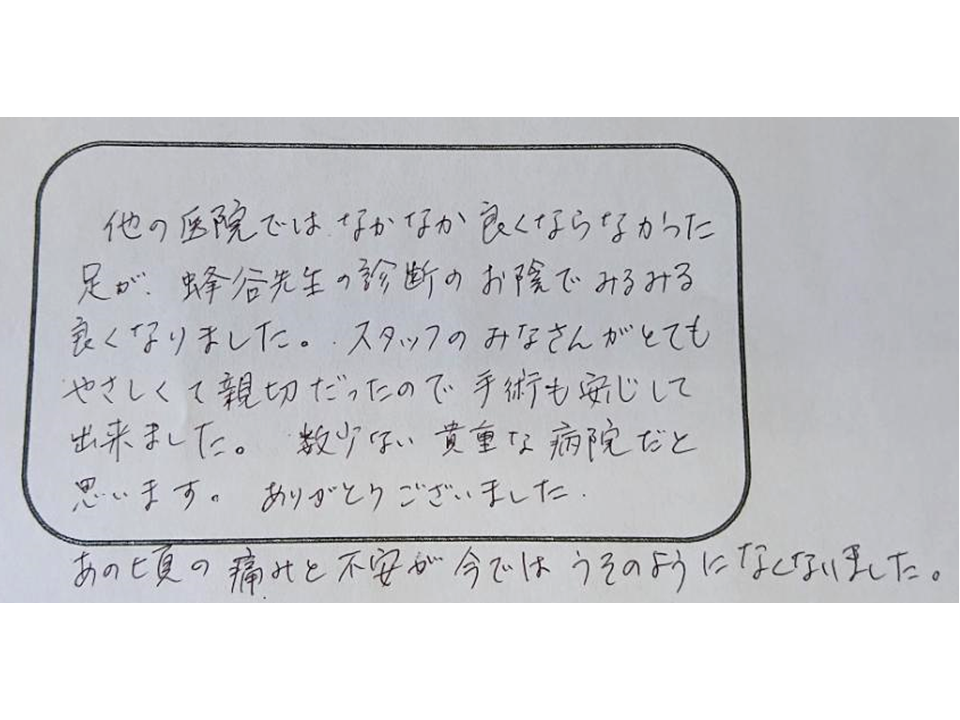 他の医院では なかなか良くならなかった
足が、蜂谷先生の診断のお陰でみるみる
良くなりました。スタッフのみなさんがとても
やさしくて親切だったので手術も安じして
出来ました。数少ない貴重な病院だと
思います。ありがとうございました.
あの頃の痛みと不安が今ではうそのようになくないました。